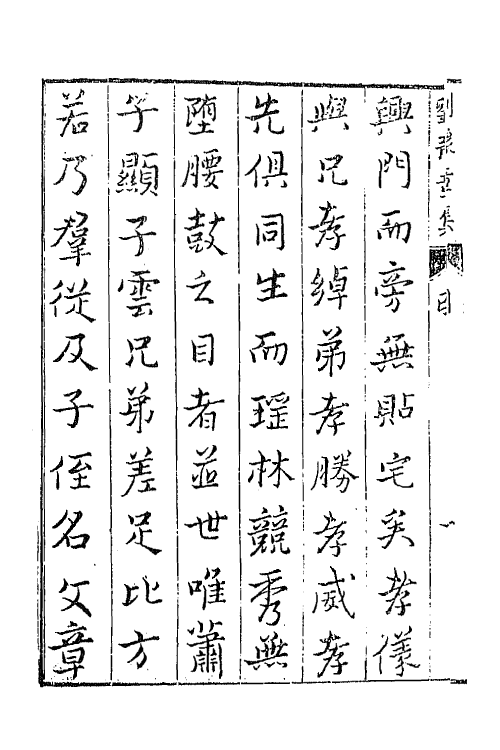 劉豫章集
目
興門而旁無貼宅矣孝儀
與兄孝綽弟孝勝孝威孝
先俱同生而瑶林競秀無
墮腰鼓之目者並世唯蕭
子顯子雲兄弟差足比方
若乃羣從及子侄名文章